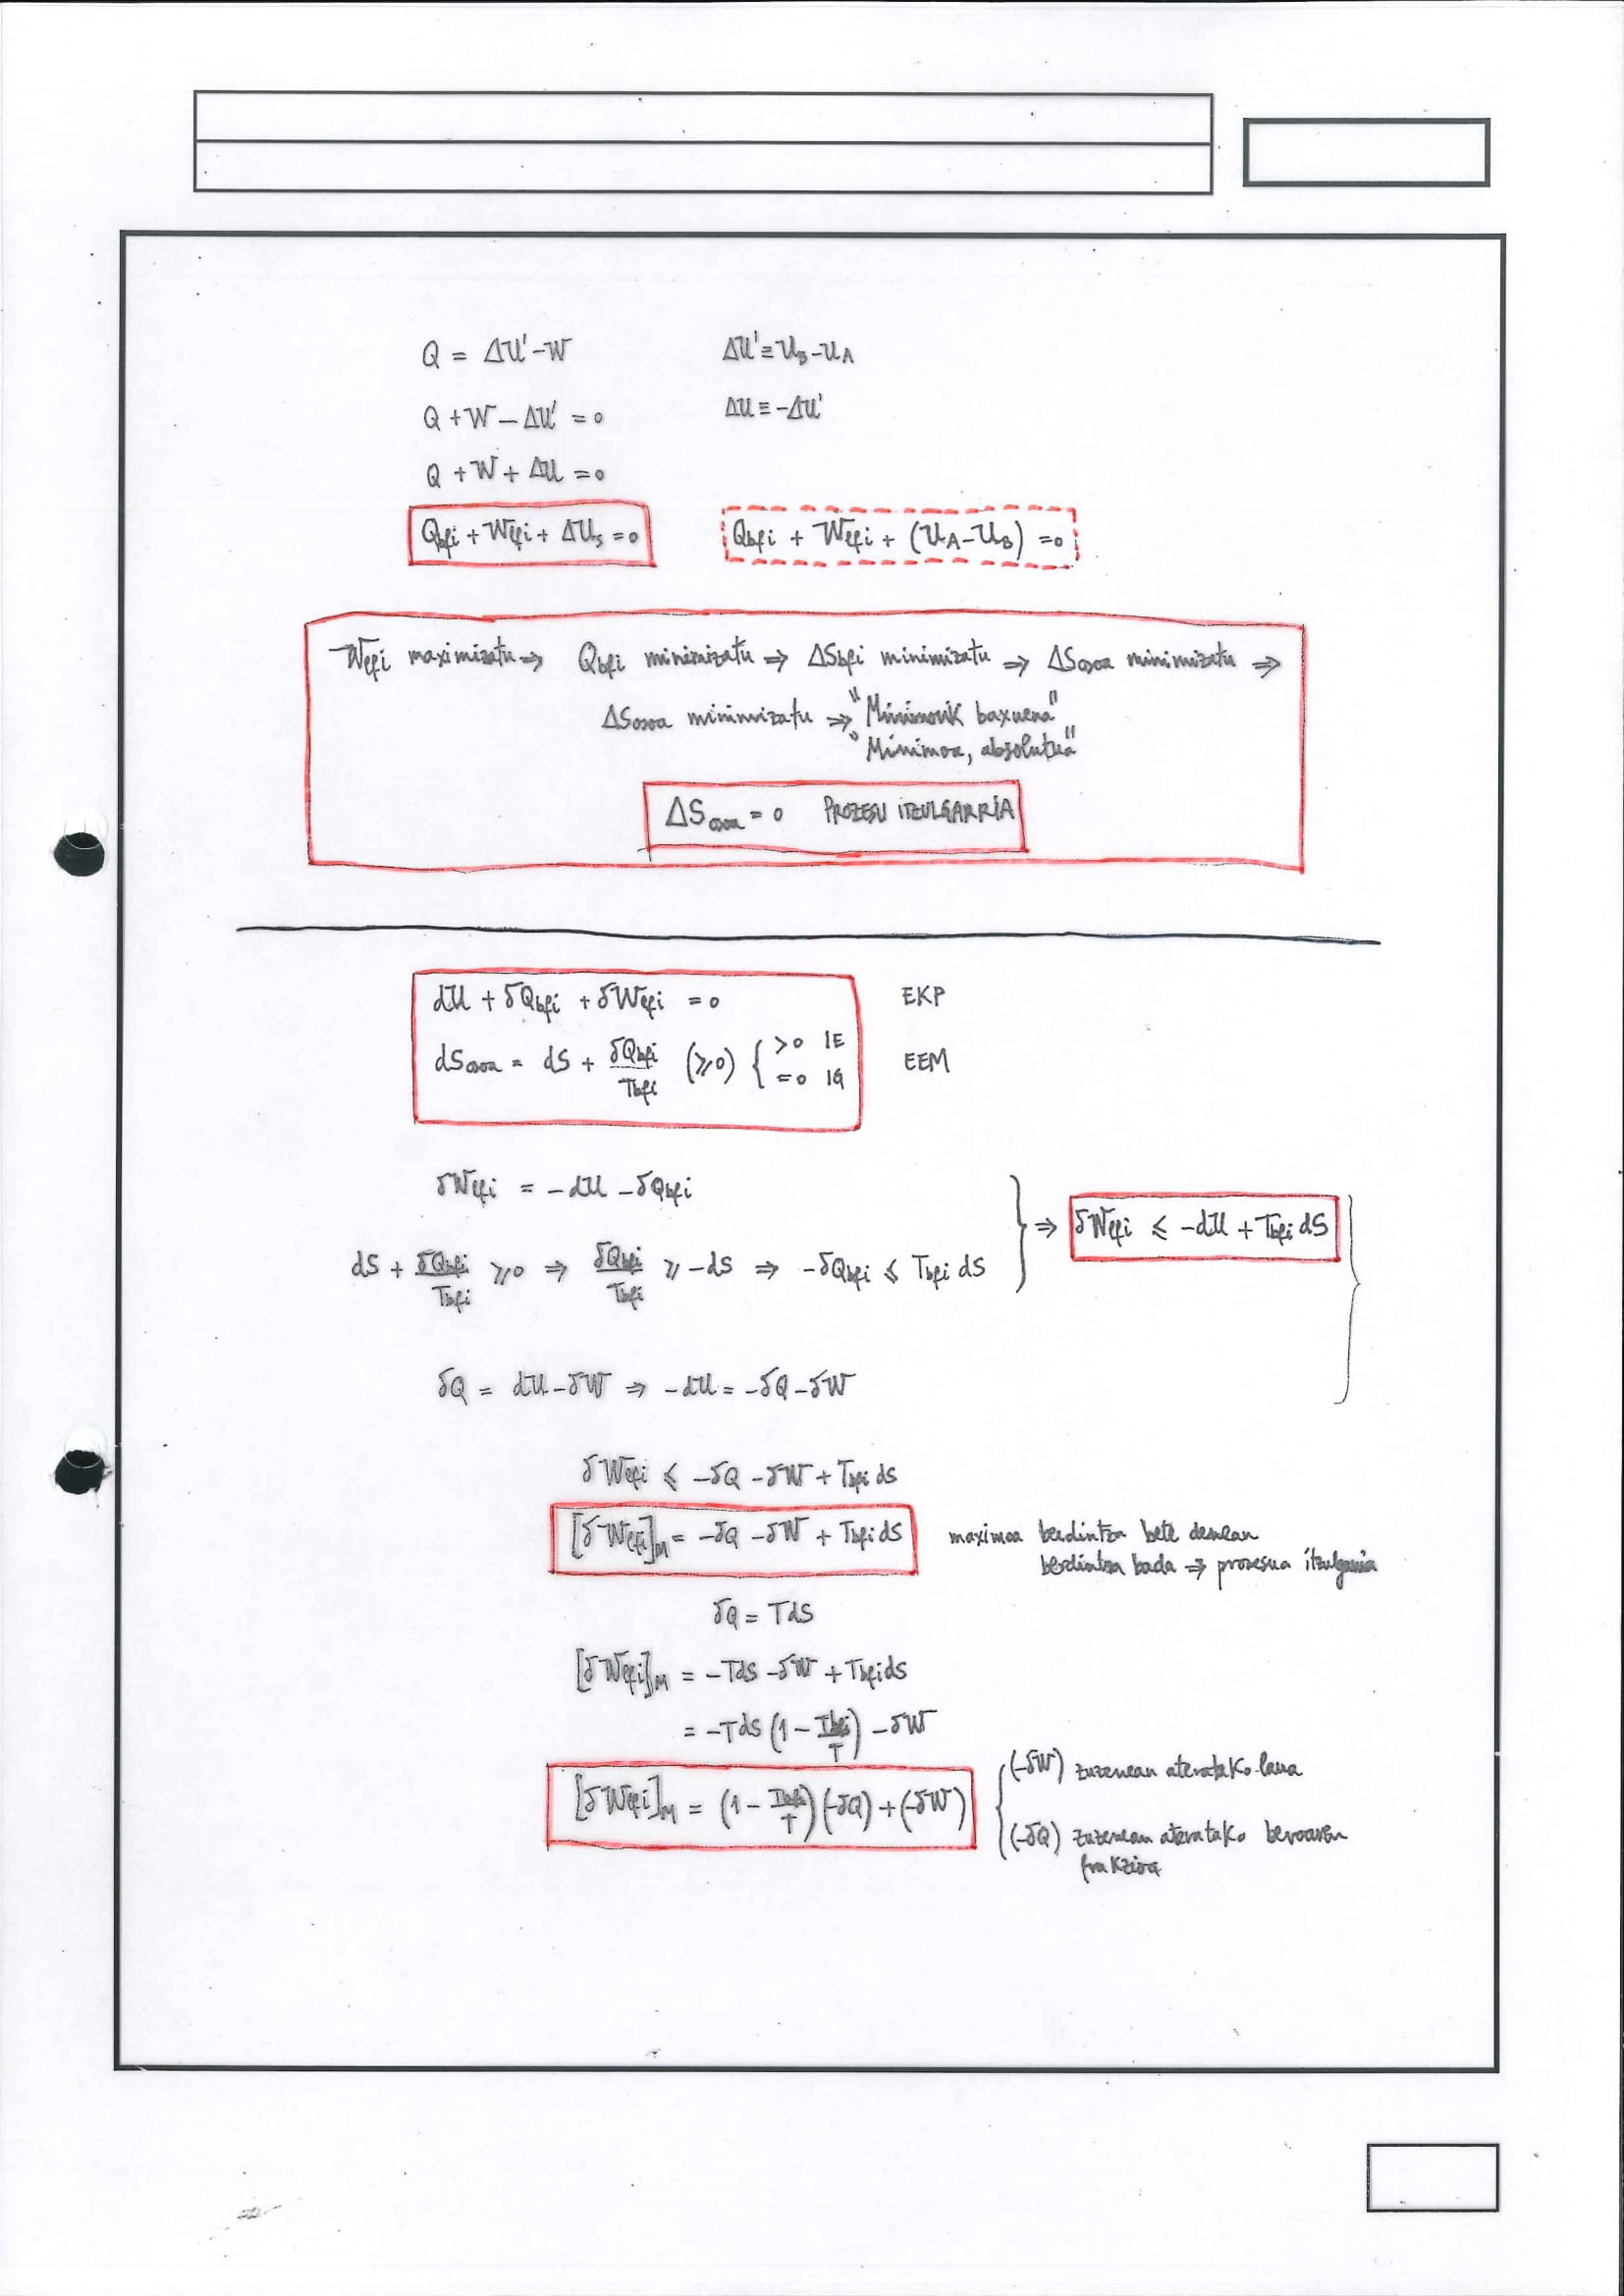 Q = ΔU' - W    ΔU' ≡ U_B - U_A
Q + W - ΔU' = 0    ΔU ≡ -ΔU'
Q + W + ΔU = 0
Q_bfi + W_lfi + ΔU_S = 0    Q_bfi + W_lfi + (U_A - U_B) = 0
W_lfi maximizatu ⇒ Q_bfi minimizatu ⇒ ΔS_bfi minimizatu ⇒ ΔS_osoa minimizatu ⇒
ΔS_osoa minimizatu ⇒ "Minimorik baxuena"
"Minimoa, absolutua"
ΔS_osoa = 0 PROZESU ITZULGARRIA
dU + δQ_bfi + δW_lfi = 0    EKP
dS_osoa = dS + δQ_bfi/T_bfi (≥0) { >0 IE =0 IG    EEM
δW_lfi = -dU - δQ_bfi
dS + δQ_bfi/T_bfi ≥ 0 ⇒ δQ_bfi/T_bfi ≥ -dS ⇒ -δQ_bfi ≤ T_bfi dS } ⇒ δW_lfi ≤ -dU + T_bfi dS
δQ = dU - δW ⇒ -dU = -δQ - δW
δW_lfi ≤ -δQ - δW + T_bfi dS
[δW_lfi]_M = -δQ - δW + T_bfi dS    maximoa berdintza bete denean
berdintza bada ⇒ prozesua itzulgarria
δQ = TdS
[δW_lfi]_M = -TdS - δW + T_bfi dS
= -TdS (1 - T_bfi/T) - δW
[δW_lfi]_M = (1 - T_bfi/T)(-δQ) + (-δW)    { (-δW) zuzenean ateratako lana
(-δQ) zuzenean ateratako beroaren
frakzioa